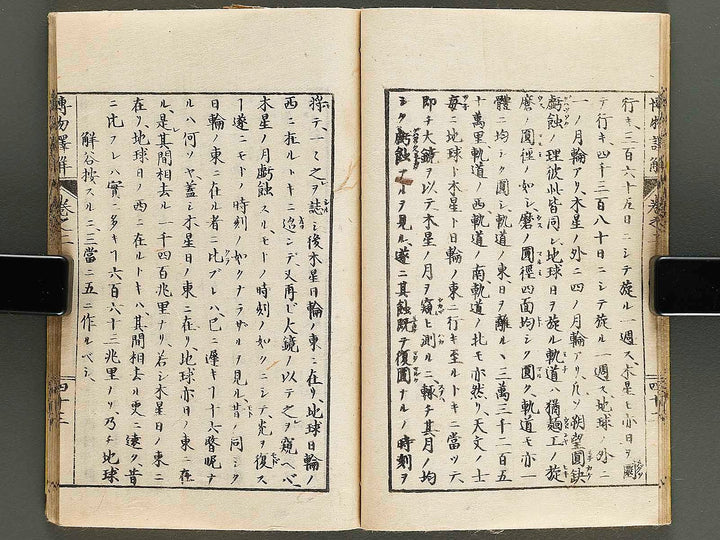 行キ、三百六十五日ニシテ旋ル一週ス、木星モ亦日ヲ
テ行キ、四千三百八十日ニシテ旋ル一週ス、地球ノ外ニ
一ノ月輪アリ、木星ノ外ニ四ノ月輪アリ、凡ソ朔望圓缺
虧蝕ノ理彼此皆同シ、地球日ヲ旋ル軌道ハ猶麺工ノ旋
磨ノ圓徑ノ如シ、磨ノ圓徑四面均シク圓ク、軌道モ亦一
體ニ均シク圓シ、軌道ノ東、日ヲ離ル丶三萬三千二百五
十萬里、軌道ノ西軌道ノ南軌道ノ北モ亦然リ、天文ノ士
毎ニ地球ト木星ト日輪ノ東ニ行キ至ルトキニ當ツテ
即チ大鏡ヲ以テ木星ノ月ヲ窺ヒ測ルニ、輙チ其月ノ均
シク虧蝕アルヲ見ル、遂ニ其蝕既テ復圓ナルノ時刻ヲ
將テ、一一之ヲ誌シ後木星日輪ノ東ニ在リ、地球日輪ノ
西ニ在ルトキニ迨ンデ又再ビ大鏡ノ以テ之ヲ窺ヘバ、
木星ノ月虧蝕スル、モトノ時刻ノ如クニシテ、光ヲ復ス
ー遂ニモトノ時刻ノ如クナラザルヲ見ル、昔ノ同シク
日輪ノ東ニ在ル者ニ比ブレバ、已ニ遲キー十六瞥呢ナ
ルハ何ソヤ、蓋シ木星日ノ東ニ在リ地球亦日ノ東ニ在
ル、是其間相去ルー千四百兆里ナリ、若シ木星日ノ東ニ
在リ、地球日ノ西ニ在ルトキハ、其間相去ル更ニ遠ク、昔
ニ比フレバ實ニ多キー六百六十三兆里ノリ、乃チ地球
解谷按スルニ、三當ニ五ニ作ルベシ、
博物譯解
卷之二
四十三